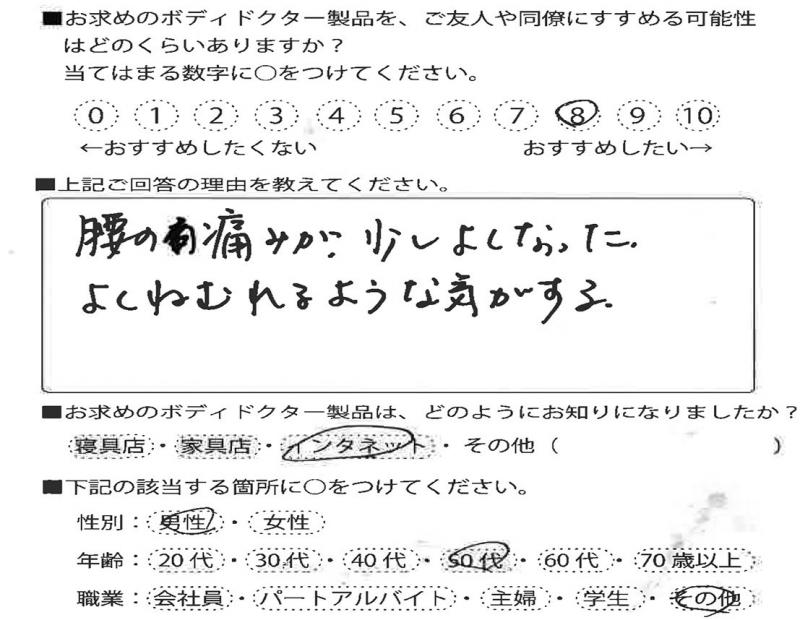 ■お求めのボディドクター製品を、ご友人や同僚にすすめる可能性
はどのくらいありますか？
当てはまる数字に○をつけてください。
0 1 2 3 4 5 6 7 8 9 10
←おすすめしたくない おすすめしたい→
■上記ご回答の理由を教えてください。
腰の痛みが、少しよくなった。
よくねむれるような気がする。
■お求めのボディドクター製品は、どのようにお知りになりましたか？
寝具店・家具店・インタネット・その他（ ）
■下記の該当する箇所に○をつけてください。
性別：男性・女性
年齢：20代・30代・40代・50代・60代・70歳以上
職業：会社員・パートアルバイト・主婦・学生・その他